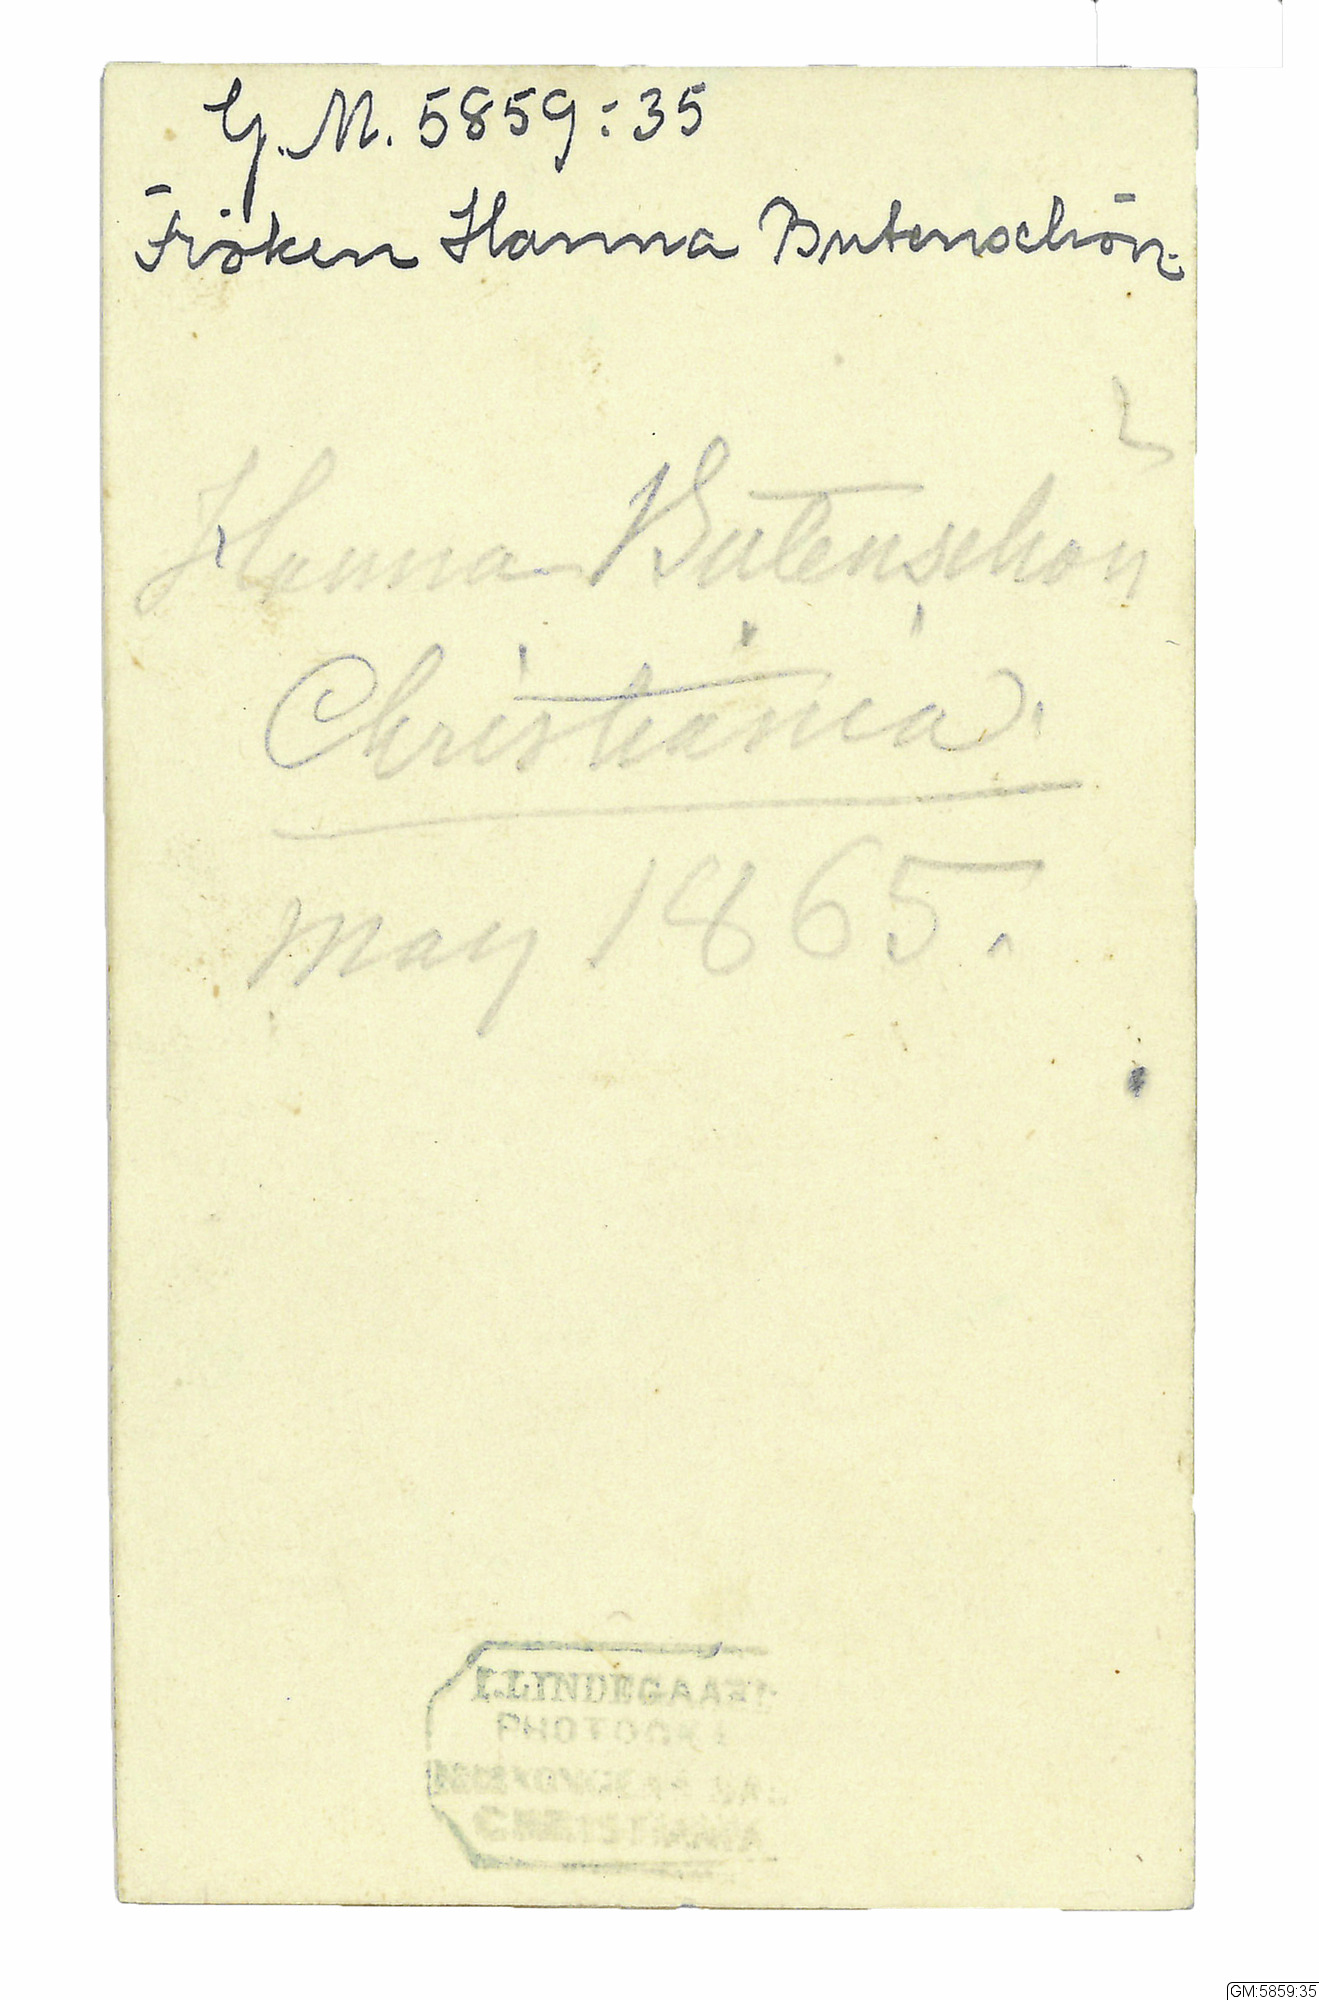 G.M. 5859:35
Fröken Hanna Butenschön.
Hanna Butenschön
Christiania.
May 1865.
L. LINDEGAARD
CHRISTIANIA
GM:5859:35